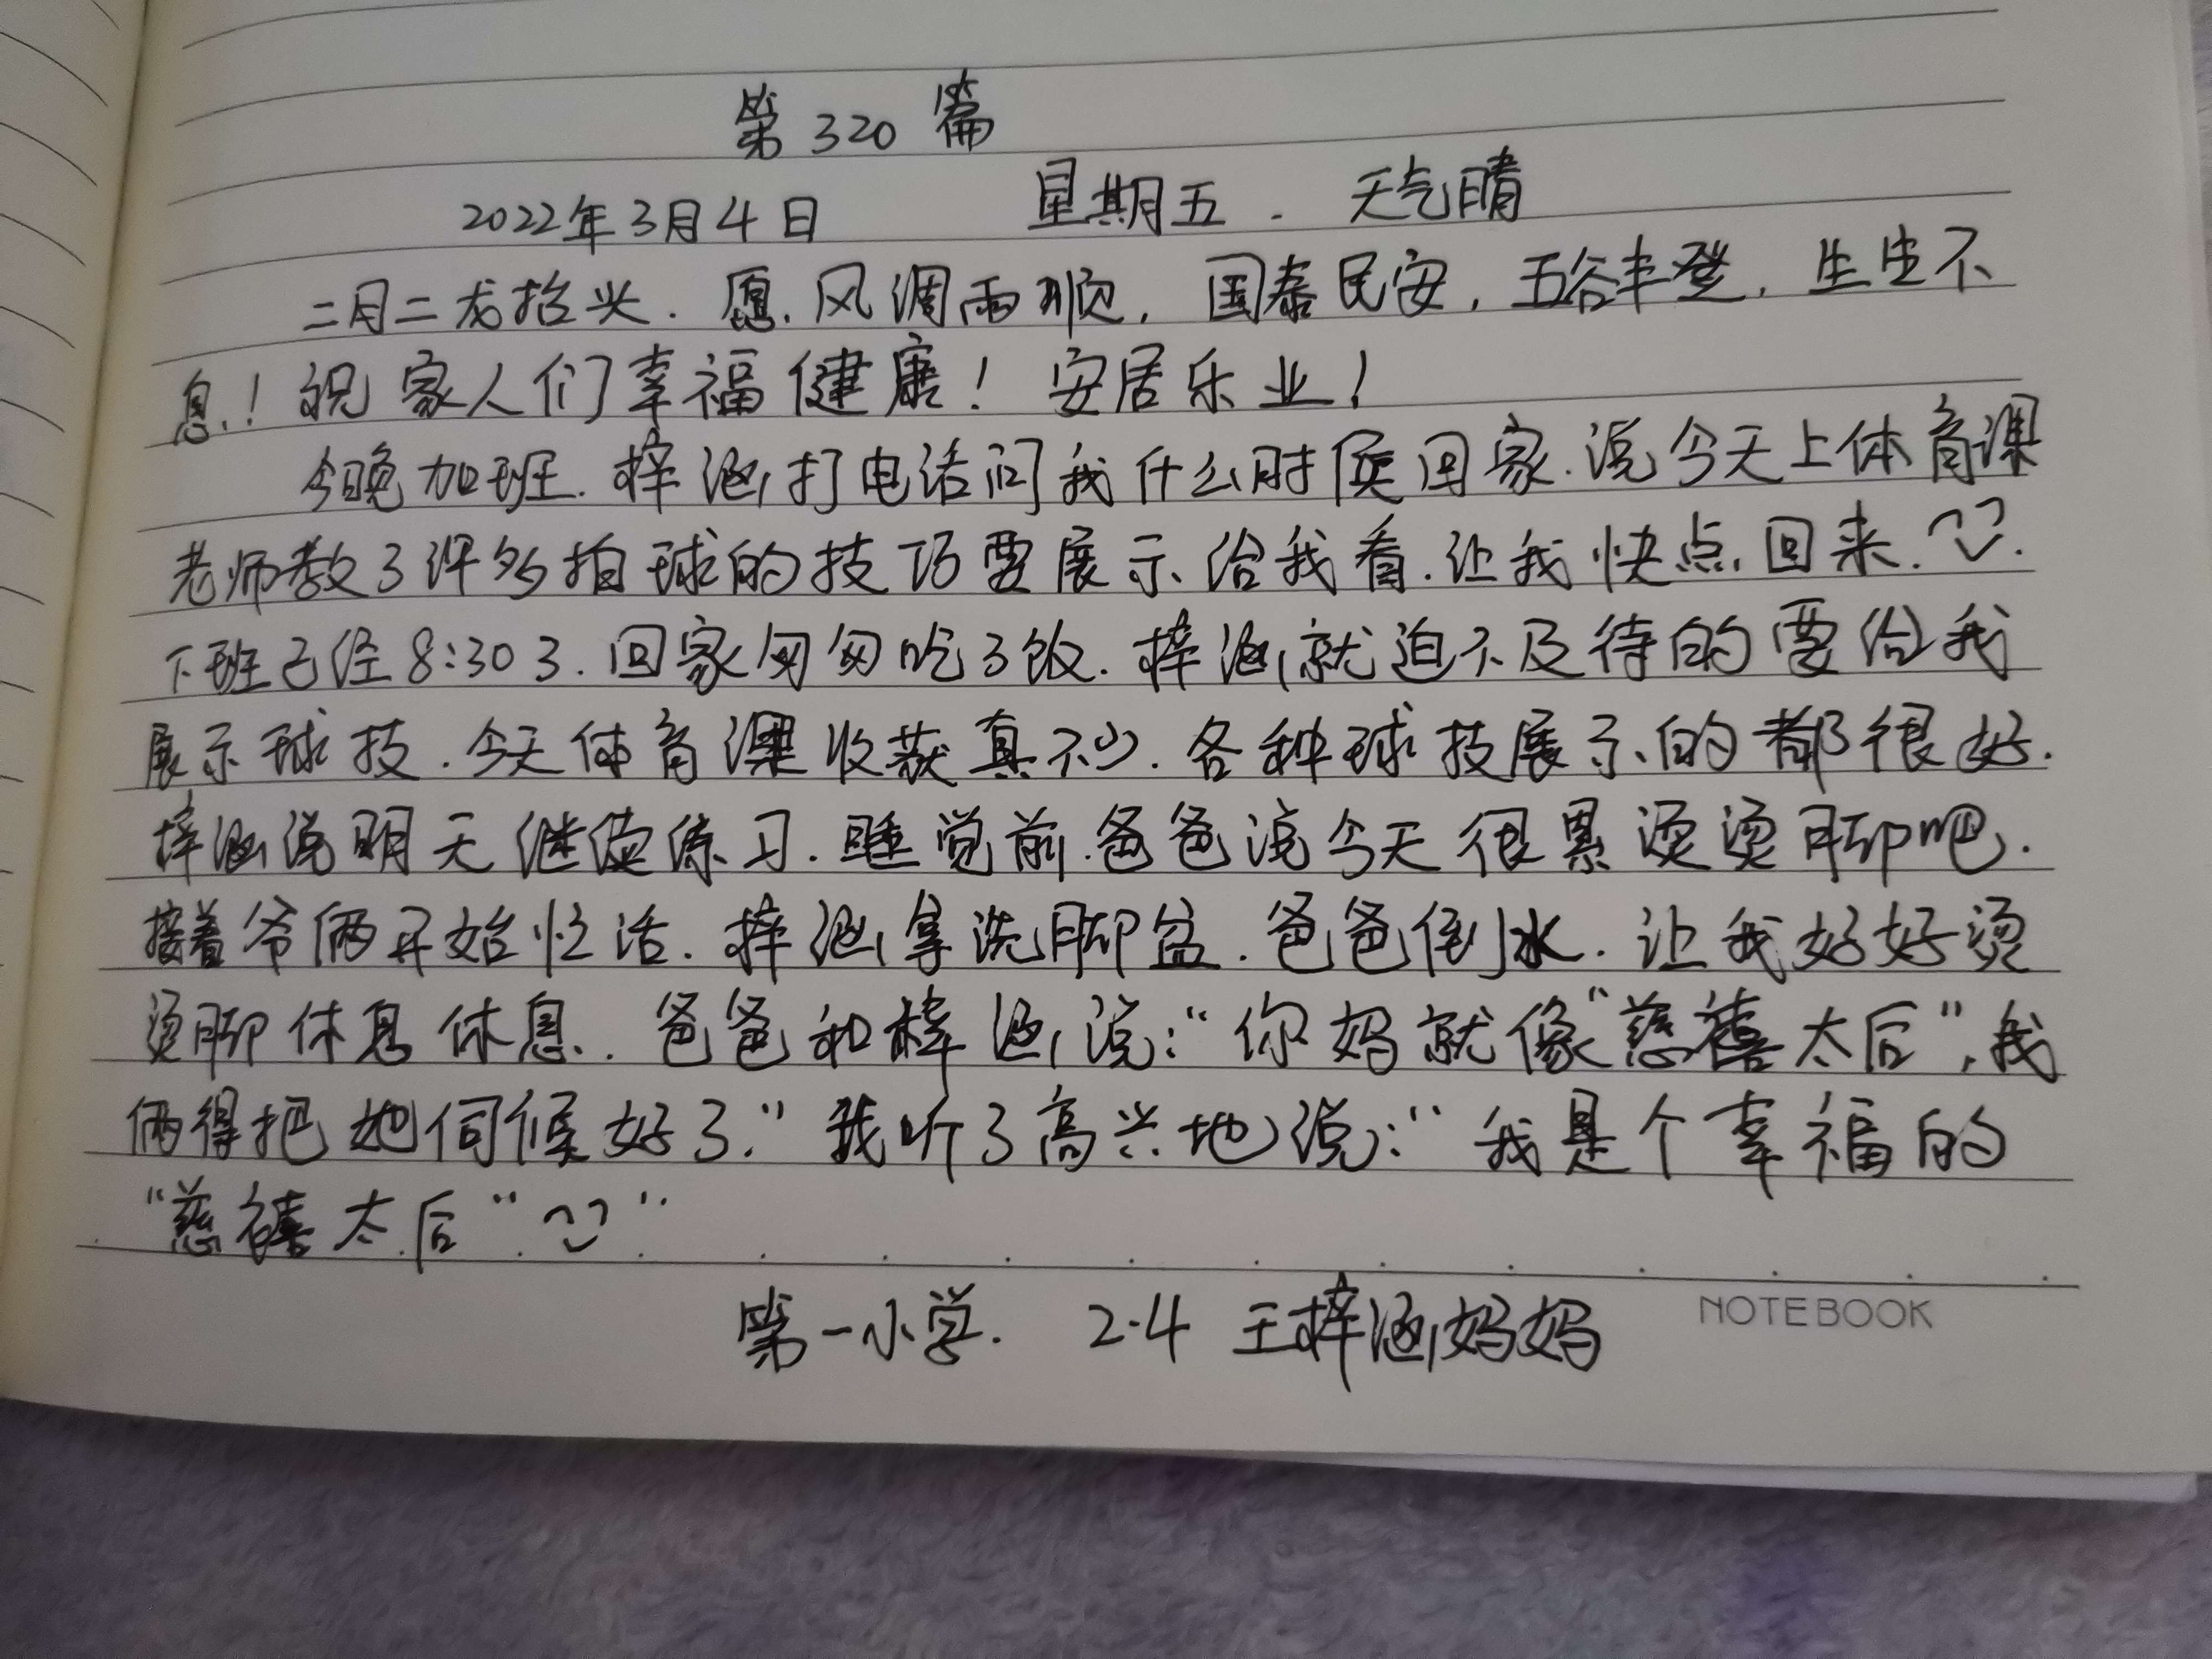 第320篇
2022年3月4日 星期五. 天气晴
二月二龙抬头.愿.风调雨顺,国泰民安,五谷丰登,生生不
息!祝家人们幸福健康!安居乐业!
今晚加班.梓涵打电话问我什么时候回家.说今天上体育课
老师教了许多拍球的技巧要展示给我看.让我快点回来.
下班已经8:30了.回家匆匆吃了饭.梓涵就迫不及待的要给我
展示球技.今天体育课收获真不少.各种球技展示的都很好.
梓涵说明天继续练习.睡觉前.爸爸说今天很累烫烫脚吧.
接着爷俩开始忙活.梓涵拿洗脚盆.爸爸倒水.让我好好烫
烫脚休息休息.爸爸和梓涵说:“你妈就像“慈禧太后”,我
俩得把她伺候好了.”我听了高兴地说:“我是个幸福的
“慈禧太后””
第一小学. 2.4 王梓涵妈妈
NOTEBOOK